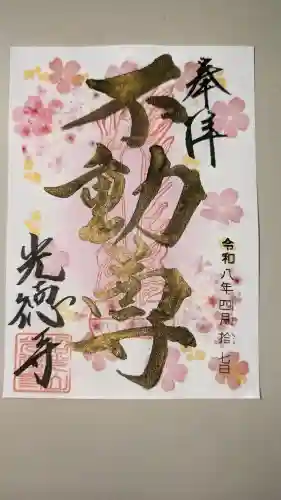 奉拝
不動尊
令和八年四月拾七日
光徳寺